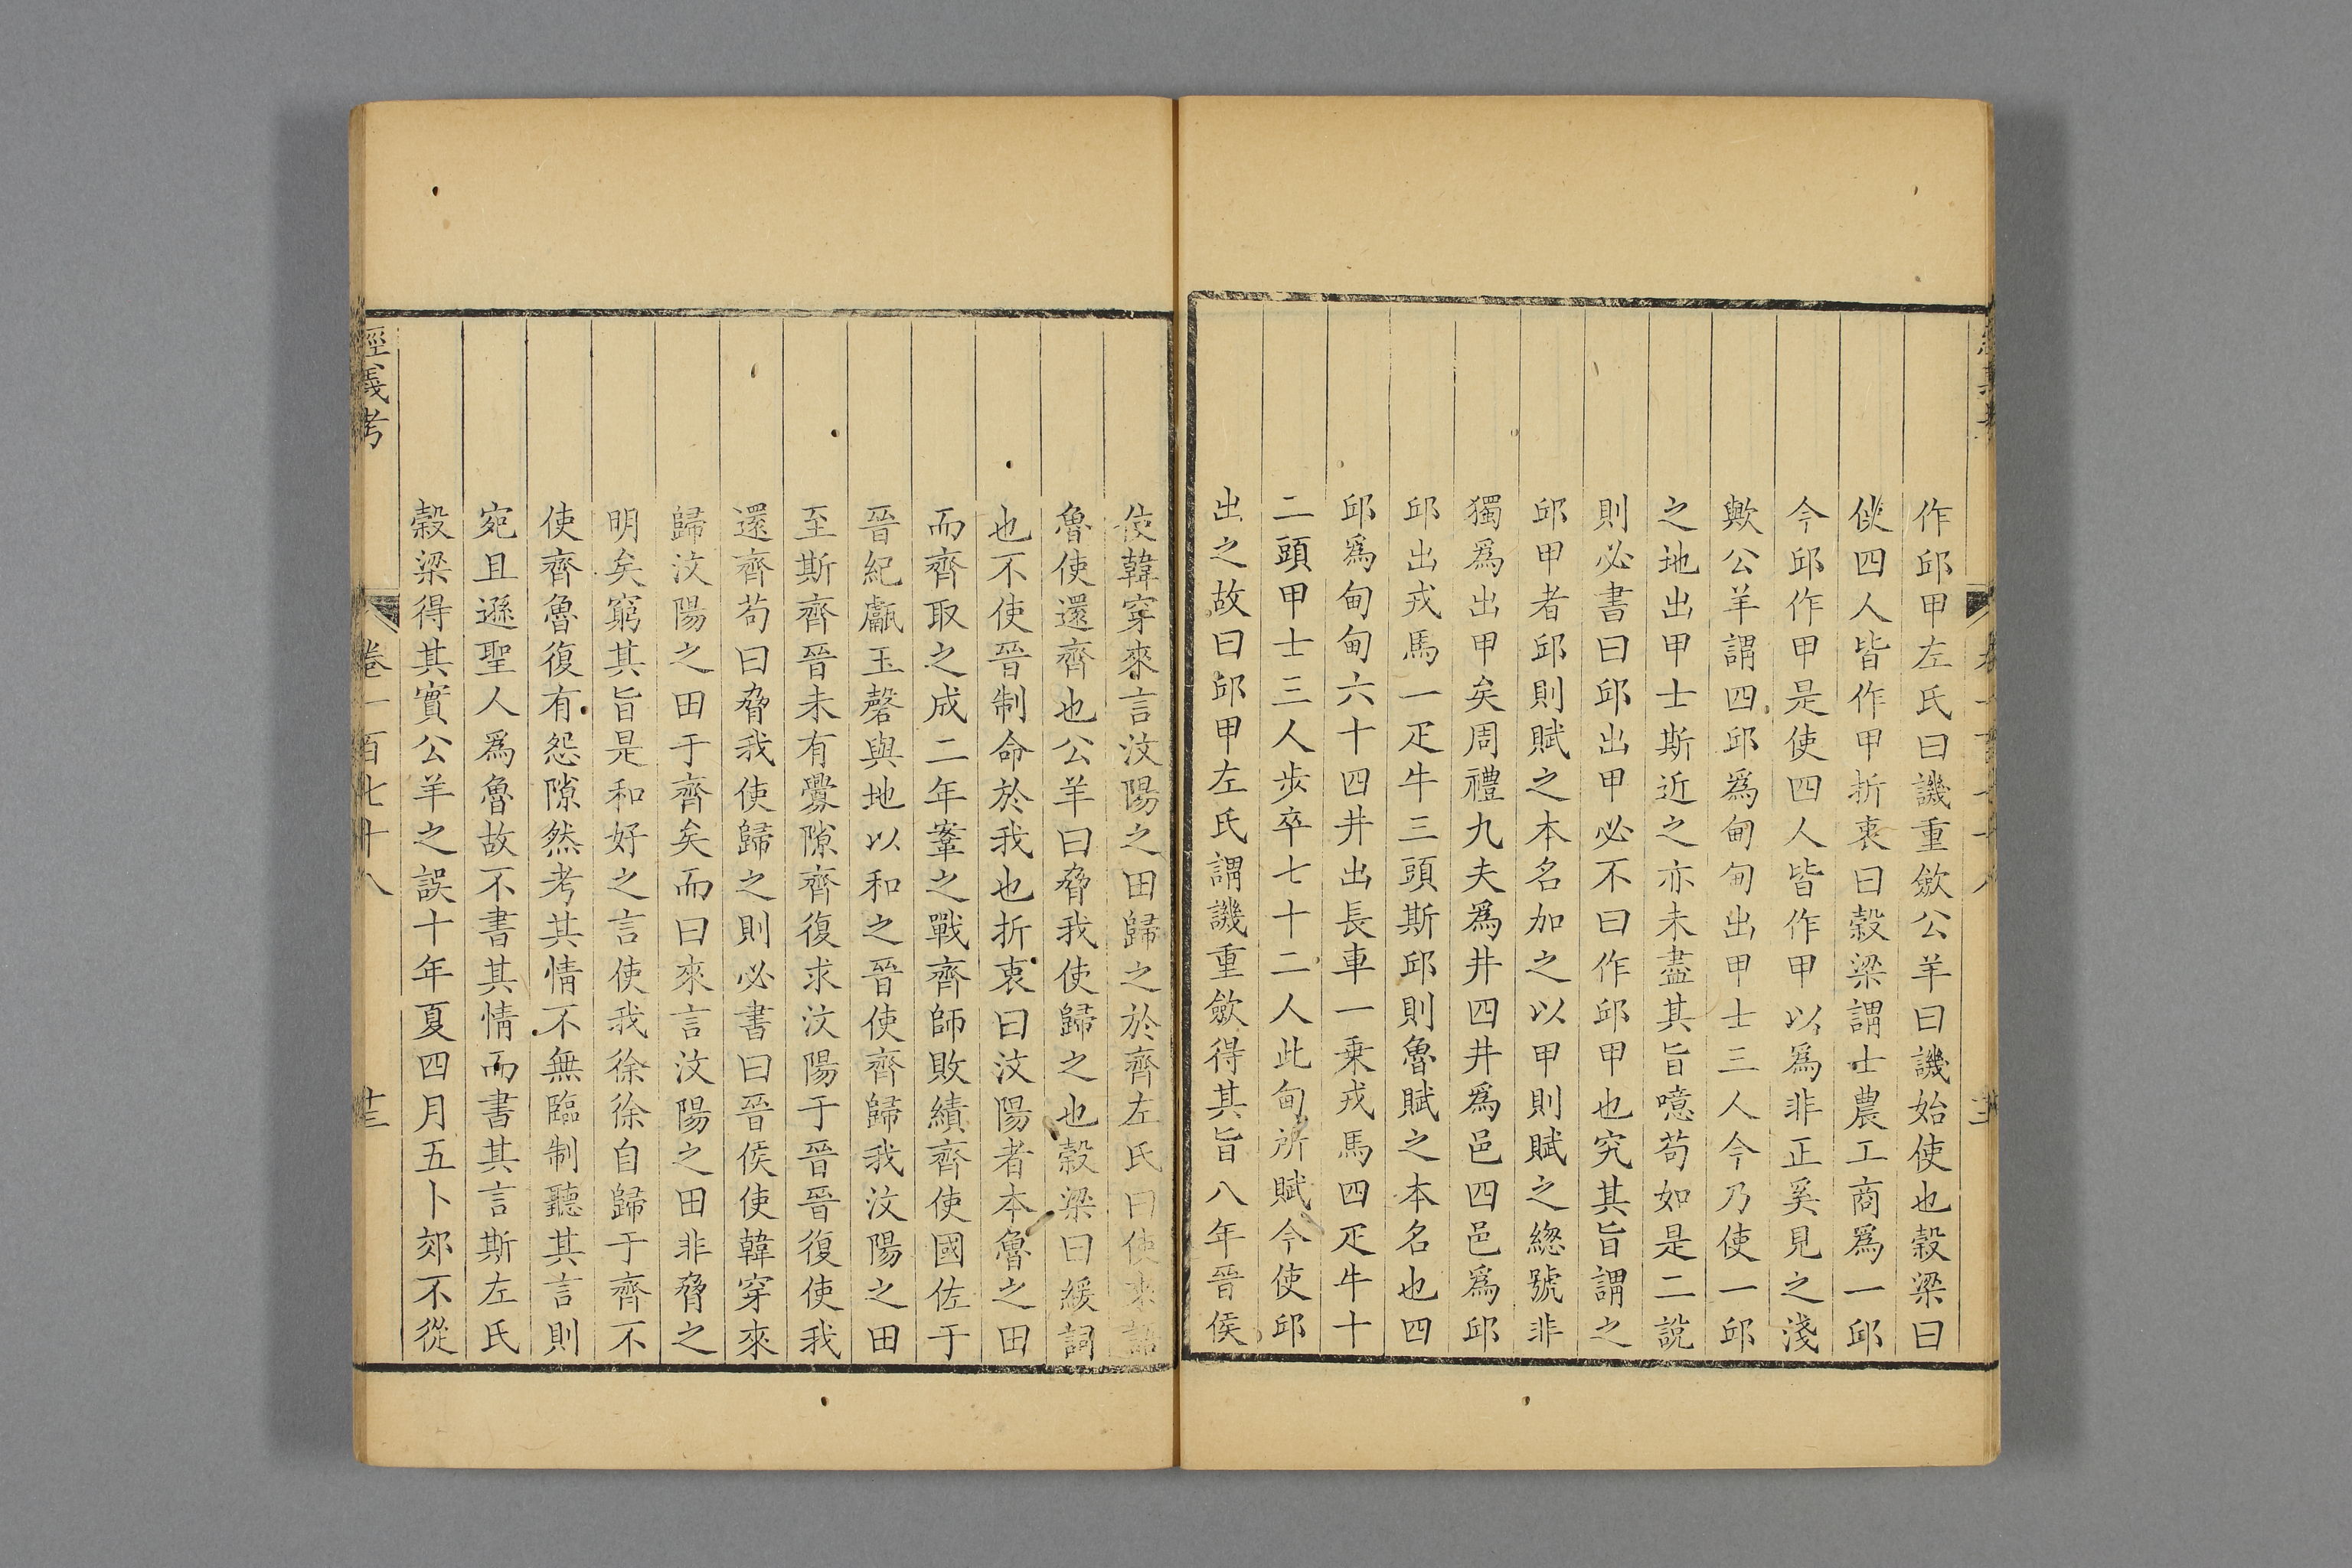 作邱甲左氏曰譏重斂公羊曰譏始使也穀梁曰
使四人皆作甲折衷曰穀梁謂士農工商爲一邱
今邱作甲是使四人皆作甲以爲非正奚見之淺
歟公羊謂四邱爲甸甸出甲士三人今乃使一邱
之地出甲士斯近之亦未盡其旨噫苟如是二說
則必書曰邱出甲必不曰作邱甲也究其旨謂之
邱甲者邱則賦之本名加之以甲則賦之緫號非
獨爲出甲矣周禮九夫爲井四井爲邑四邑爲邱
邱出戎馬一疋牛三頭斯邱則魯賦之本名也四
邱爲甸甸六十四井出長車一乗戎馬四疋牛十
二頭甲士三人步卒七十二人此甸所賦今使邱
出之故曰邱甲左氏謂譏重斂得其旨八年晉侯
使韓穿來言汶陽之田歸之於齊左氏曰使來語
魯使還齊也公羊曰脅我使歸之也穀梁曰緩詞
也不使晉制命於我也折衷曰汶陽者本魯之田
而齊取之成二年鞌之戰齊師敗績齊使國佐于
晉紀甗玉磬與地以和之晉使齊歸我汶陽之田
至斯齊晉未有釁隙齊復求汶陽于晉晉復使我
還齊苟曰脅我使歸之則必書曰晉侯使韓穿來
歸汶陽之田于齊矣而曰來言汶陽之田非脅之
明矣窮其旨是和好之言使我徐徐自歸于齊不
使齊魯復有怨隙然考其情不無臨制聽其言則
宛且遜聖人爲魯故不書其情而書其言斯左氏
穀梁得其實公羊之誤十年夏四月五卜郊不從
經義考 卷一百七十八 十三